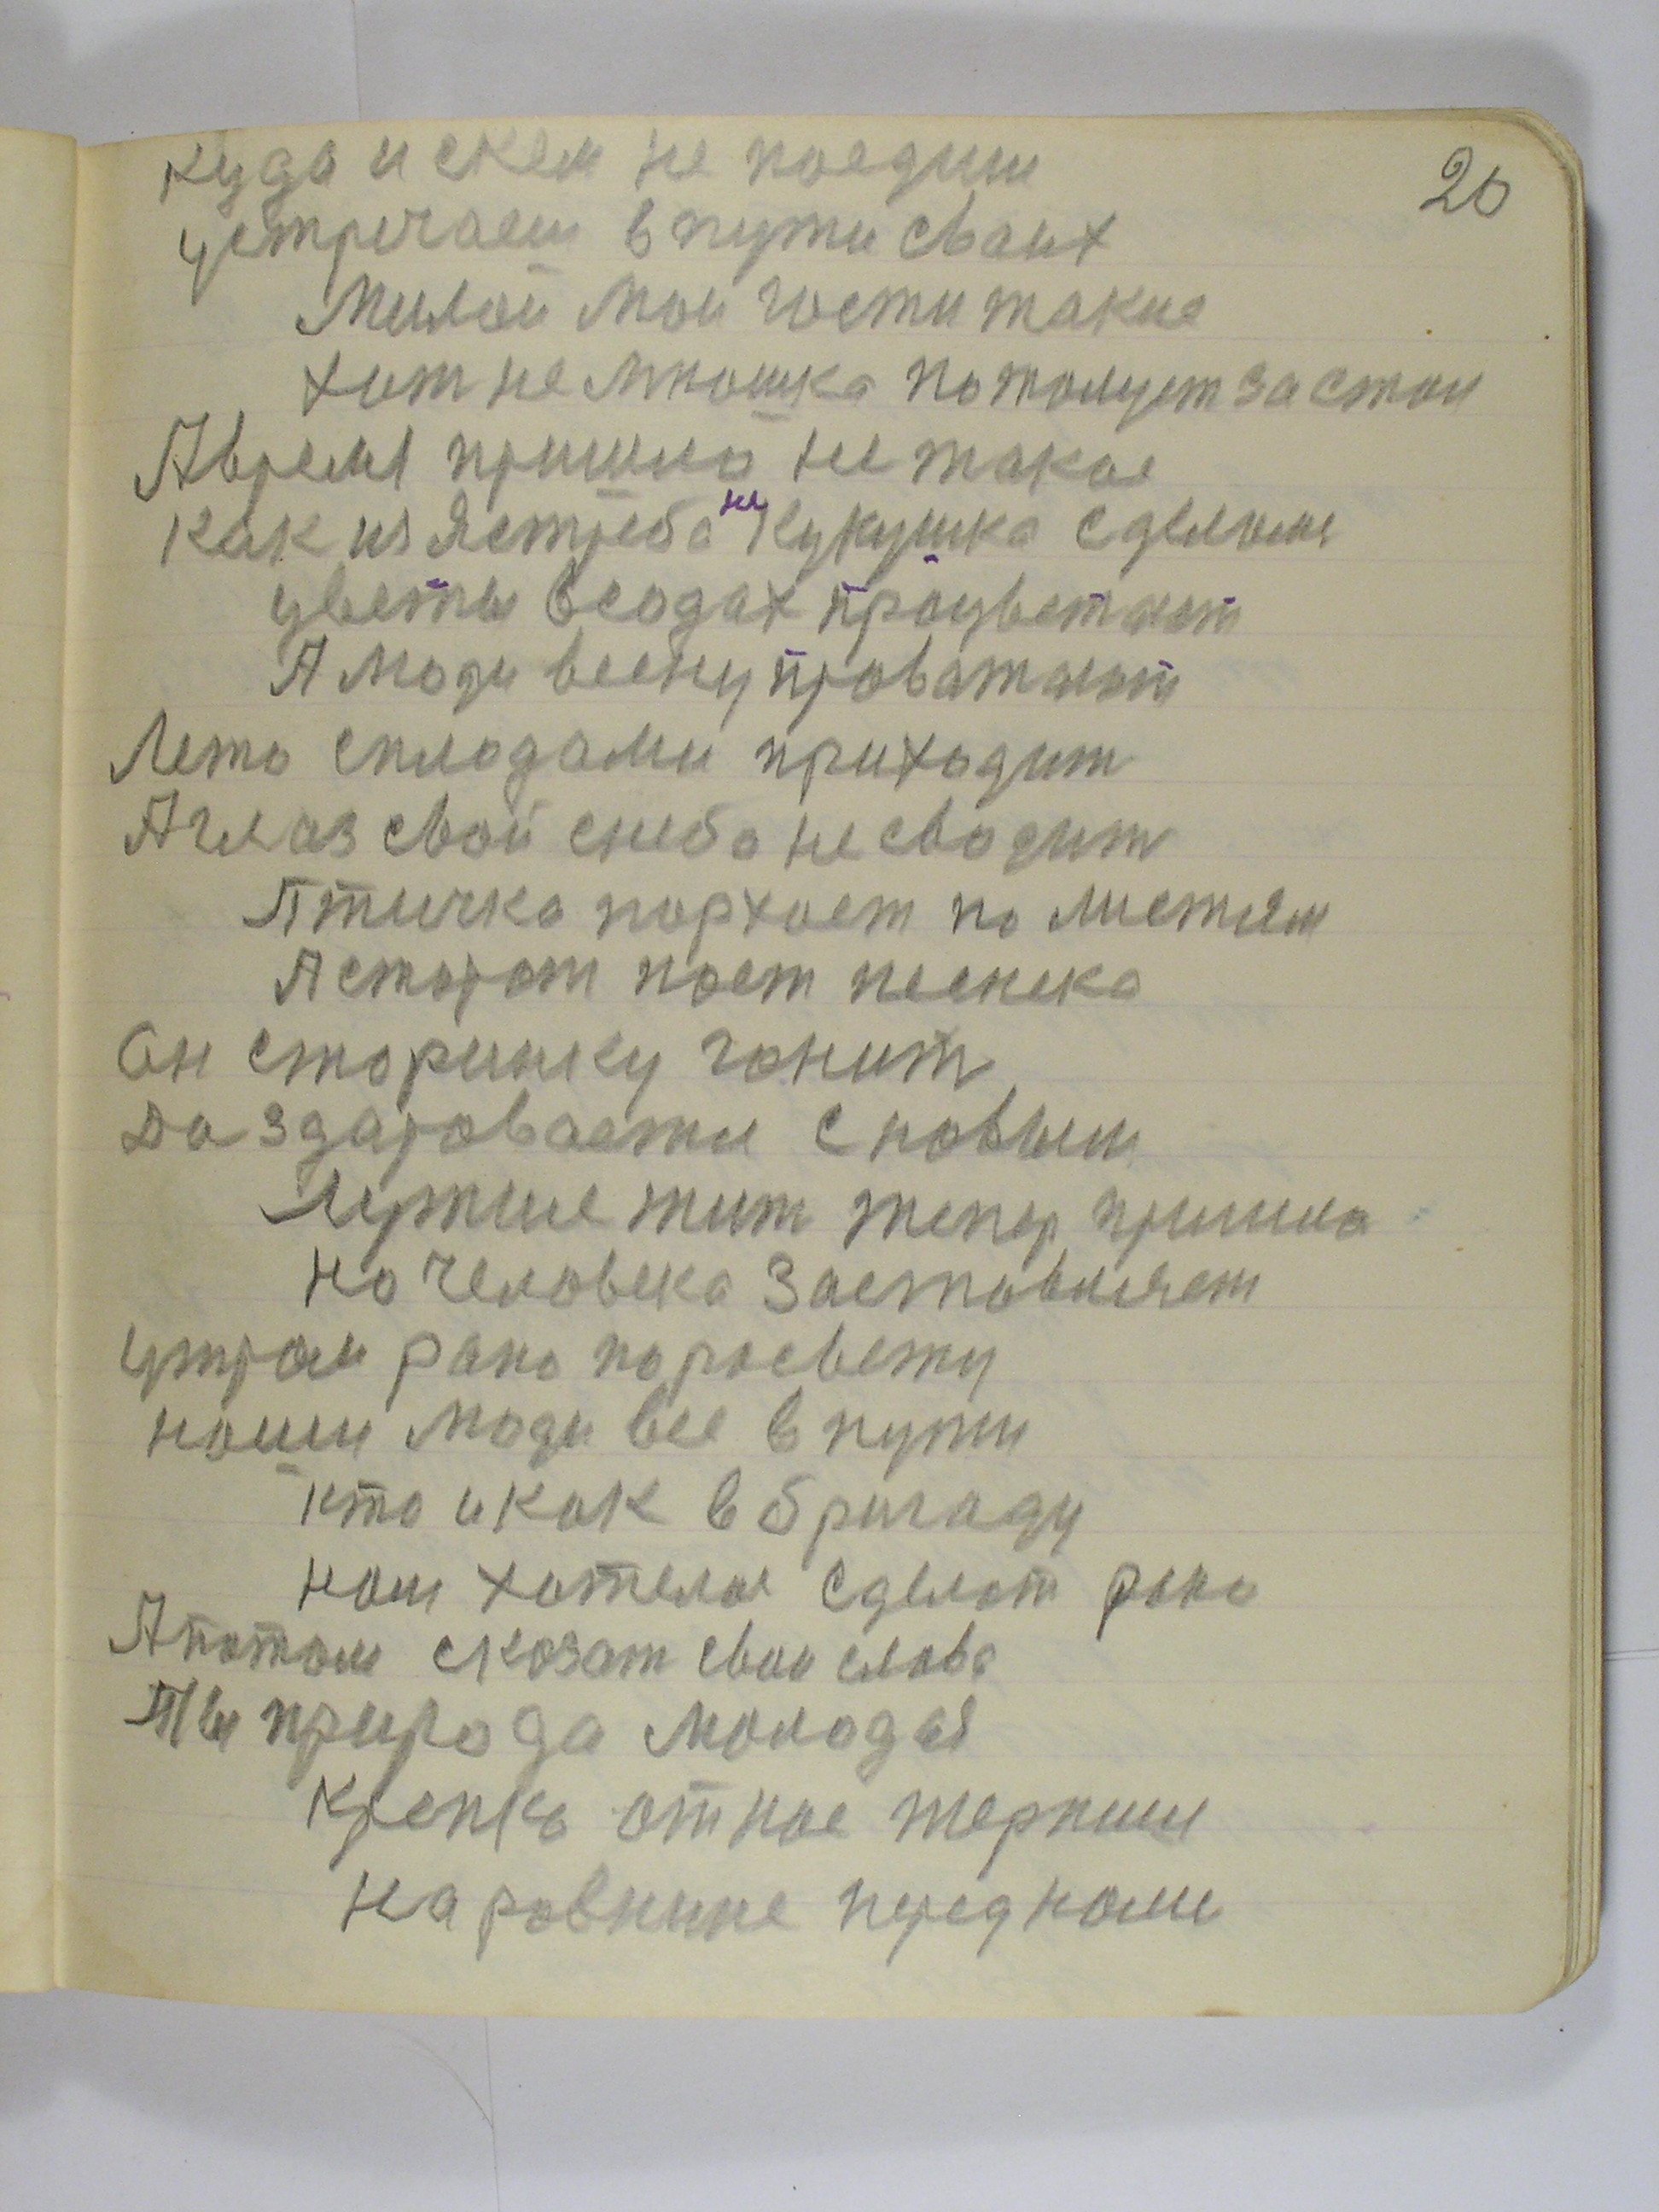 20
куда и скем не поедиш
устричаеш в пути сваих
Милой мои гости такие
хот не мношка потолует застои
Авремя пришло не такое
как из Ястреба не Кукушка сделоть
цветы всодах процветают
А люди весну проважают
Лето сплодами приходит
Аглаз свой снеба не сводит
Птичка порхоет по листям
Астарот поет песнека
Он сторинку гонит
Да здаровается с новым
Лутше жит тепер пришло
но человека Заставляет
утром рано поросвету
ноши люди все в пути
кто и как в бригаду
нош хотелое сделот рано
Апотом сказат свои слова
Ты природа молодая
Крепко от нос терпиш
на ровнине перед номи